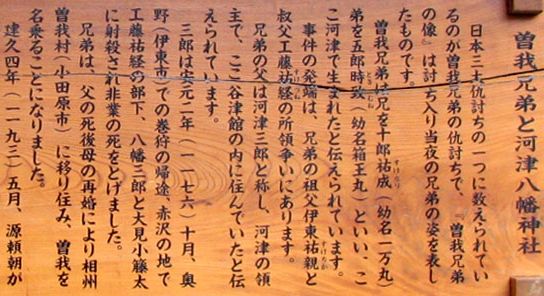 曽我兄弟と河津八幡神社
日本三大仇討ちの一つに数えられてい
るのが曽我兄弟の仇討ちで、『曽我兄弟
の像』は討ち入り当夜の兄弟の姿を表し
たものです。
曽我兄弟は兄を十郎祐成（幼名一万丸）
弟を五郎時致（幼名箱王丸）といい、こ
こ河津で生まれたと伝えられています。
事件の発端は、兄弟の祖父伊東祐親と
叔父工藤祐経の所領争いにあります。
兄弟の父は河津三郎と称し、河津の領
主で、ここ谷津館の内に住んでいたと伝
えられています。
三郎は安元二年（一一七六）十月、奥
野（伊東市）での巻狩の帰途、赤沢の地で
工藤祐経の部下、八幡三郎と大見小藤太
に射殺され非業の死をとげました。
兄弟は、父の死後母の再婚により相州
曽我村（小田原市）に移り住み、曽我を
名乗ることになりました。
建久四年（一一九三）五月、源頼朝が